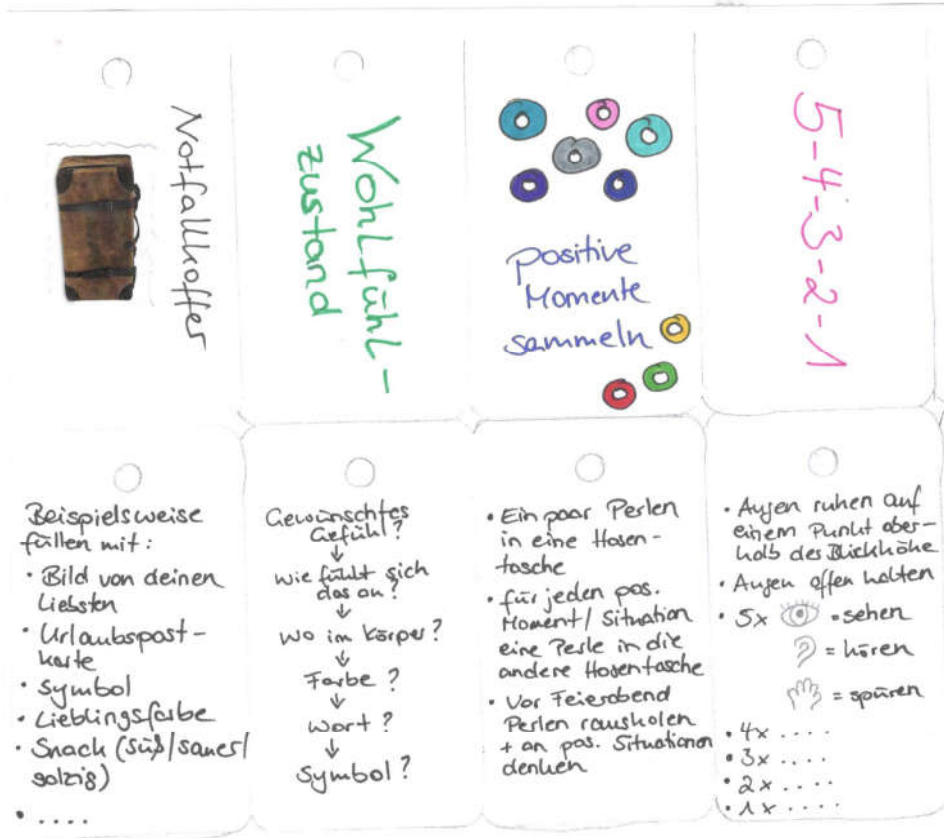 Notfallkoffer
Wohlfühl-
zustand
Positive
Momente
sammeln
5-4-3-2-1
Beispielsweise
füllen mit:
• Bild von deinen
Liebsten
• Urlaubspost-
karte
• Symbol
• Lieblingsfarbe
• Snack (süß/sauer/
salzig)
• ....
Gewünschtes
Gefühl?
↓
Wie fühlt sich
das an?
↓
Wo im Körper?
↓
Farbe?
↓
Wort?
↓
Symbol?
• Ein paar Perlen
in eine Hosen-
tasche
• für jeden pos.
Moment/Situation
eine Perle in die
andere Hosentasche
• Vor Feierabend
Perlen rausholen
+ an pos. Situationen
denken
• Augen ruhen auf
einem Punkt ober-
halb des Blickhöhe
• Augen offen halten
• 5x = sehen
= hören
= spüren
• 4x ....
• 3x ....
• 2x ....
• 1x ....